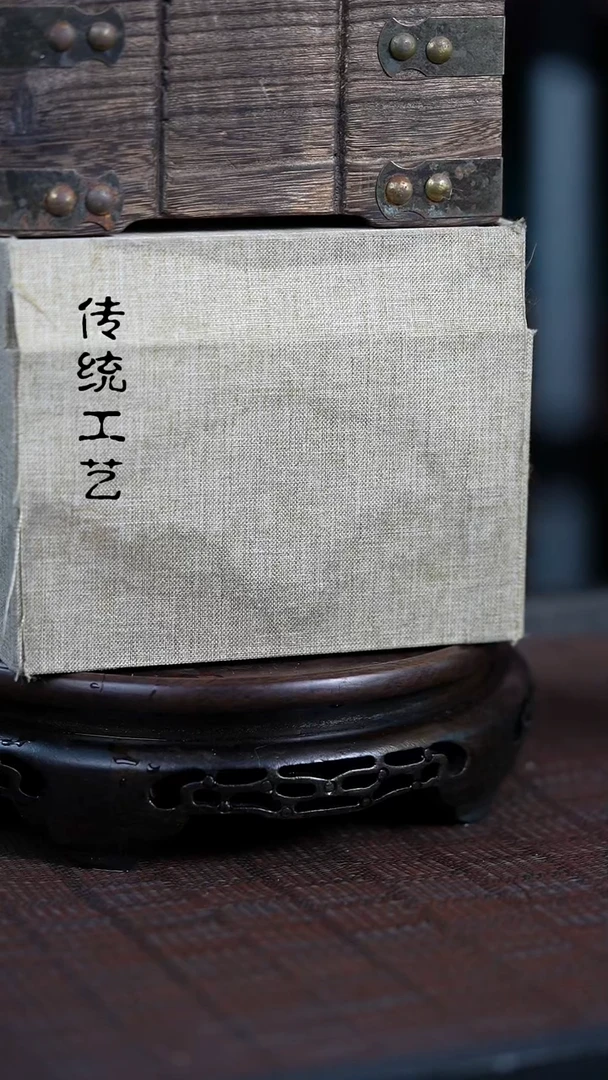 传统工艺